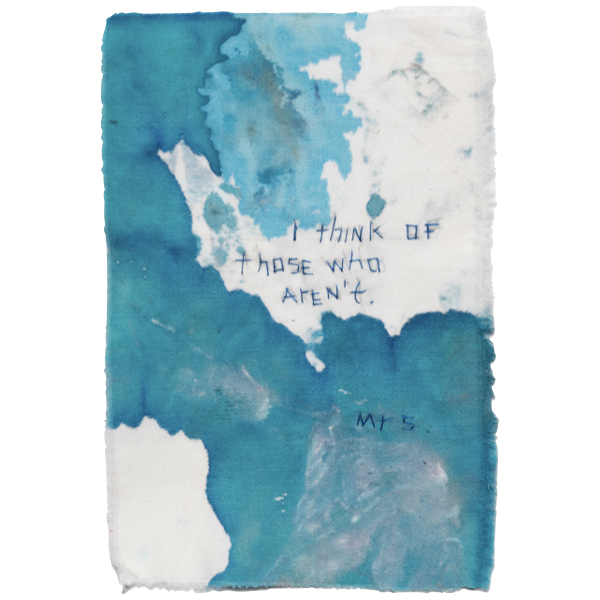 I thINK OF
thOSE WhO
ArEN't.
MrS.